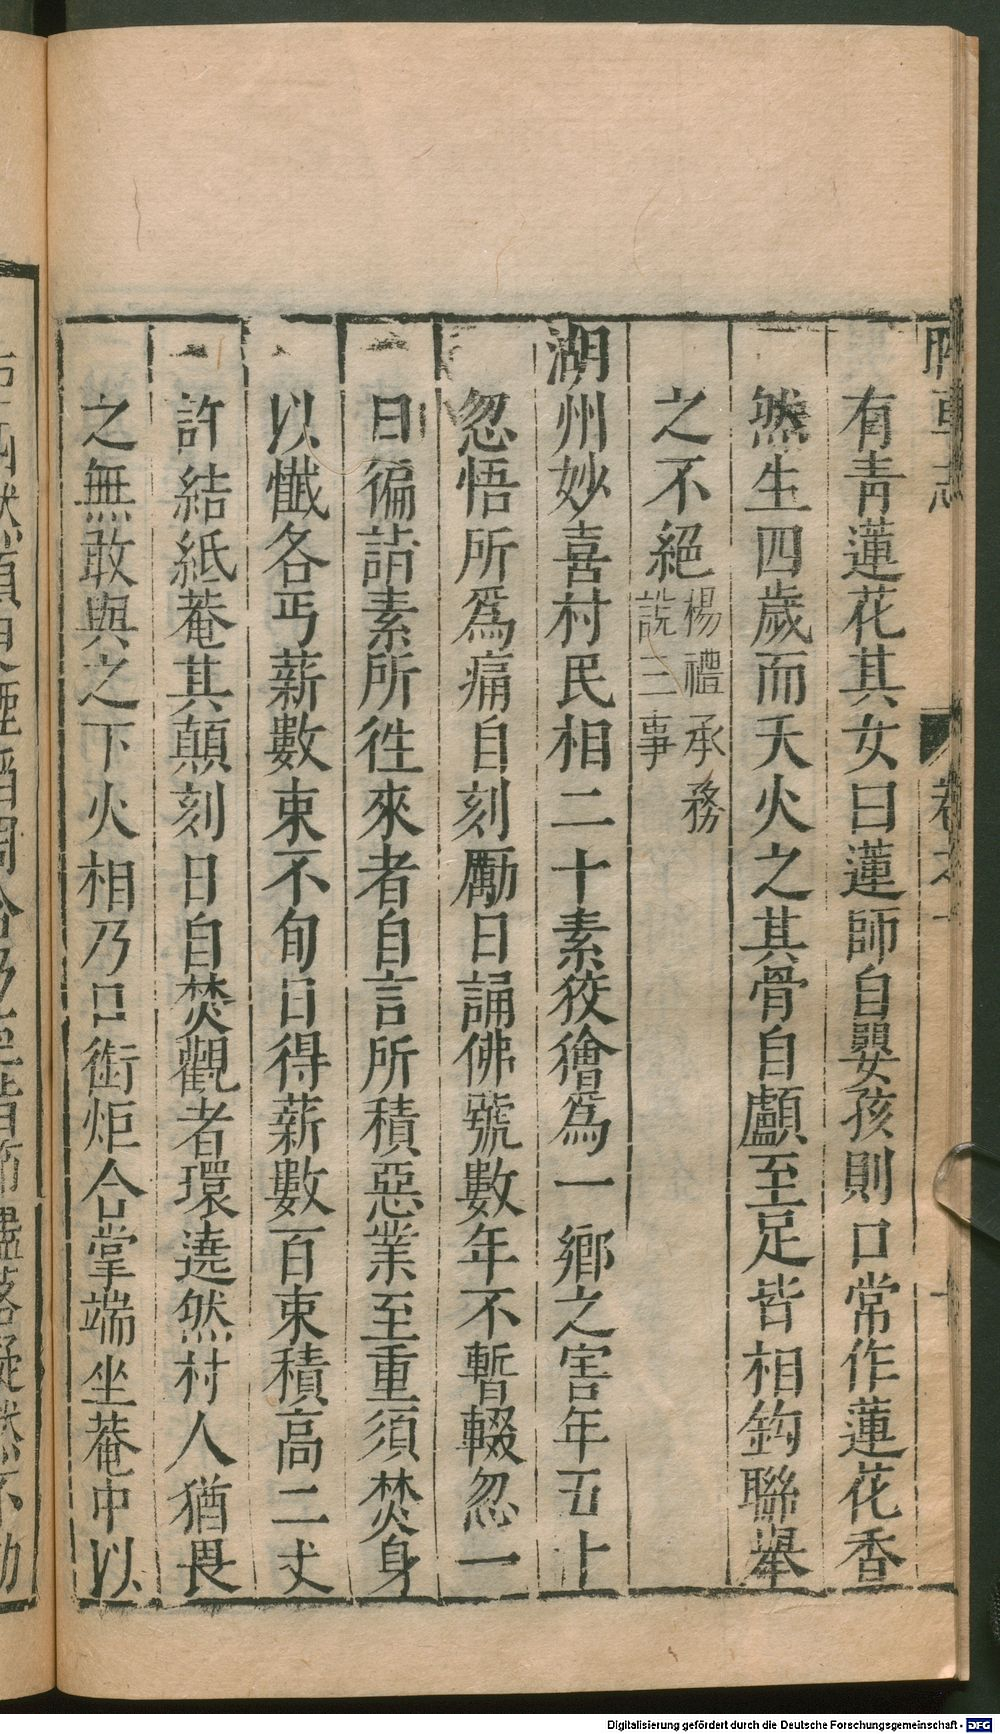 睽車志 卷之一
有青蓮花其女曰蓮師自嬰孩則口常作蓮花香
然生四歲而夭火之其骨自顱至足皆相鈎聯舉
之不絕楊禮承務
說三事
湖州妙喜村民相二十素狡獪爲一鄉之害年五十
忽悟所爲痛自刻勵日誦佛號數年不暫輟忽一
日徧詣素所徃來者自言所積惡業至重須焚身
以懺各丐薪數束不旬日得薪數百束積高二丈
許結紙菴其顛刻日自焚觀者環遶然村人猶畏
之無敢與之下火相乃口銜炬合掌端坐菴中以
Digitalisierung gefördert durch die Deutsche Forschungsgemeinschaft - DFG